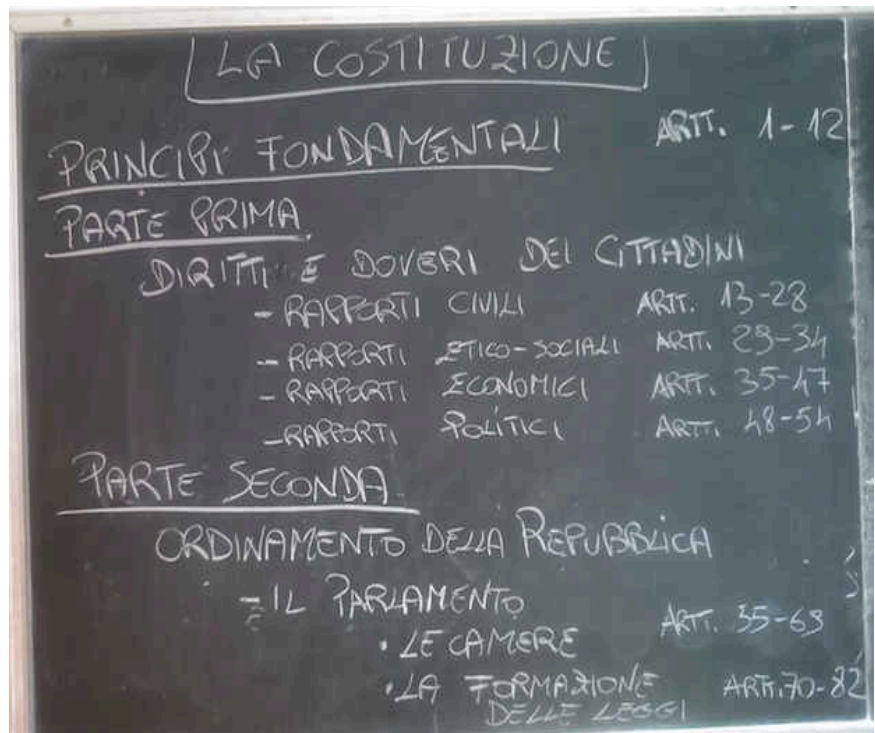 LA COSTITUZIONE
PRINCIPI FONDAMENTALI ARTT. 1-12
PARTE PRIMA
DIRITTI E DOVERI DEI CITTADINI
- RAPPORTI CIVILI ARTT. 13-28
- RAPPORTI ETICO-SOCIALI ARTT. 29-34
- RAPPORTI ECONOMICI ARTT. 35-47
- RAPPORTI POLITICI ARTT. 48-54
PARTE SECONDA
ORDINAMENTO DELLA REPUBBLICA
- IL PARLAMENTO
• LE CAMERE ARTT. 55-69
• LA FORMAZIONE ARTT. 70-82
DELLE LEGGI